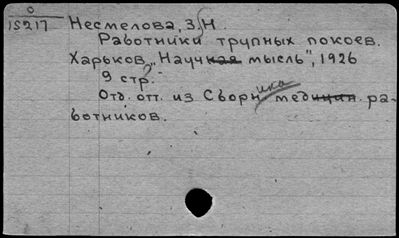 0
15217 Несмелова, З. Н.
Работники трупных покоев.
Харьков, "Научная мысль", 1926
9 стр.
Отд. отт. из Сборника медицин. ра-
ботников.